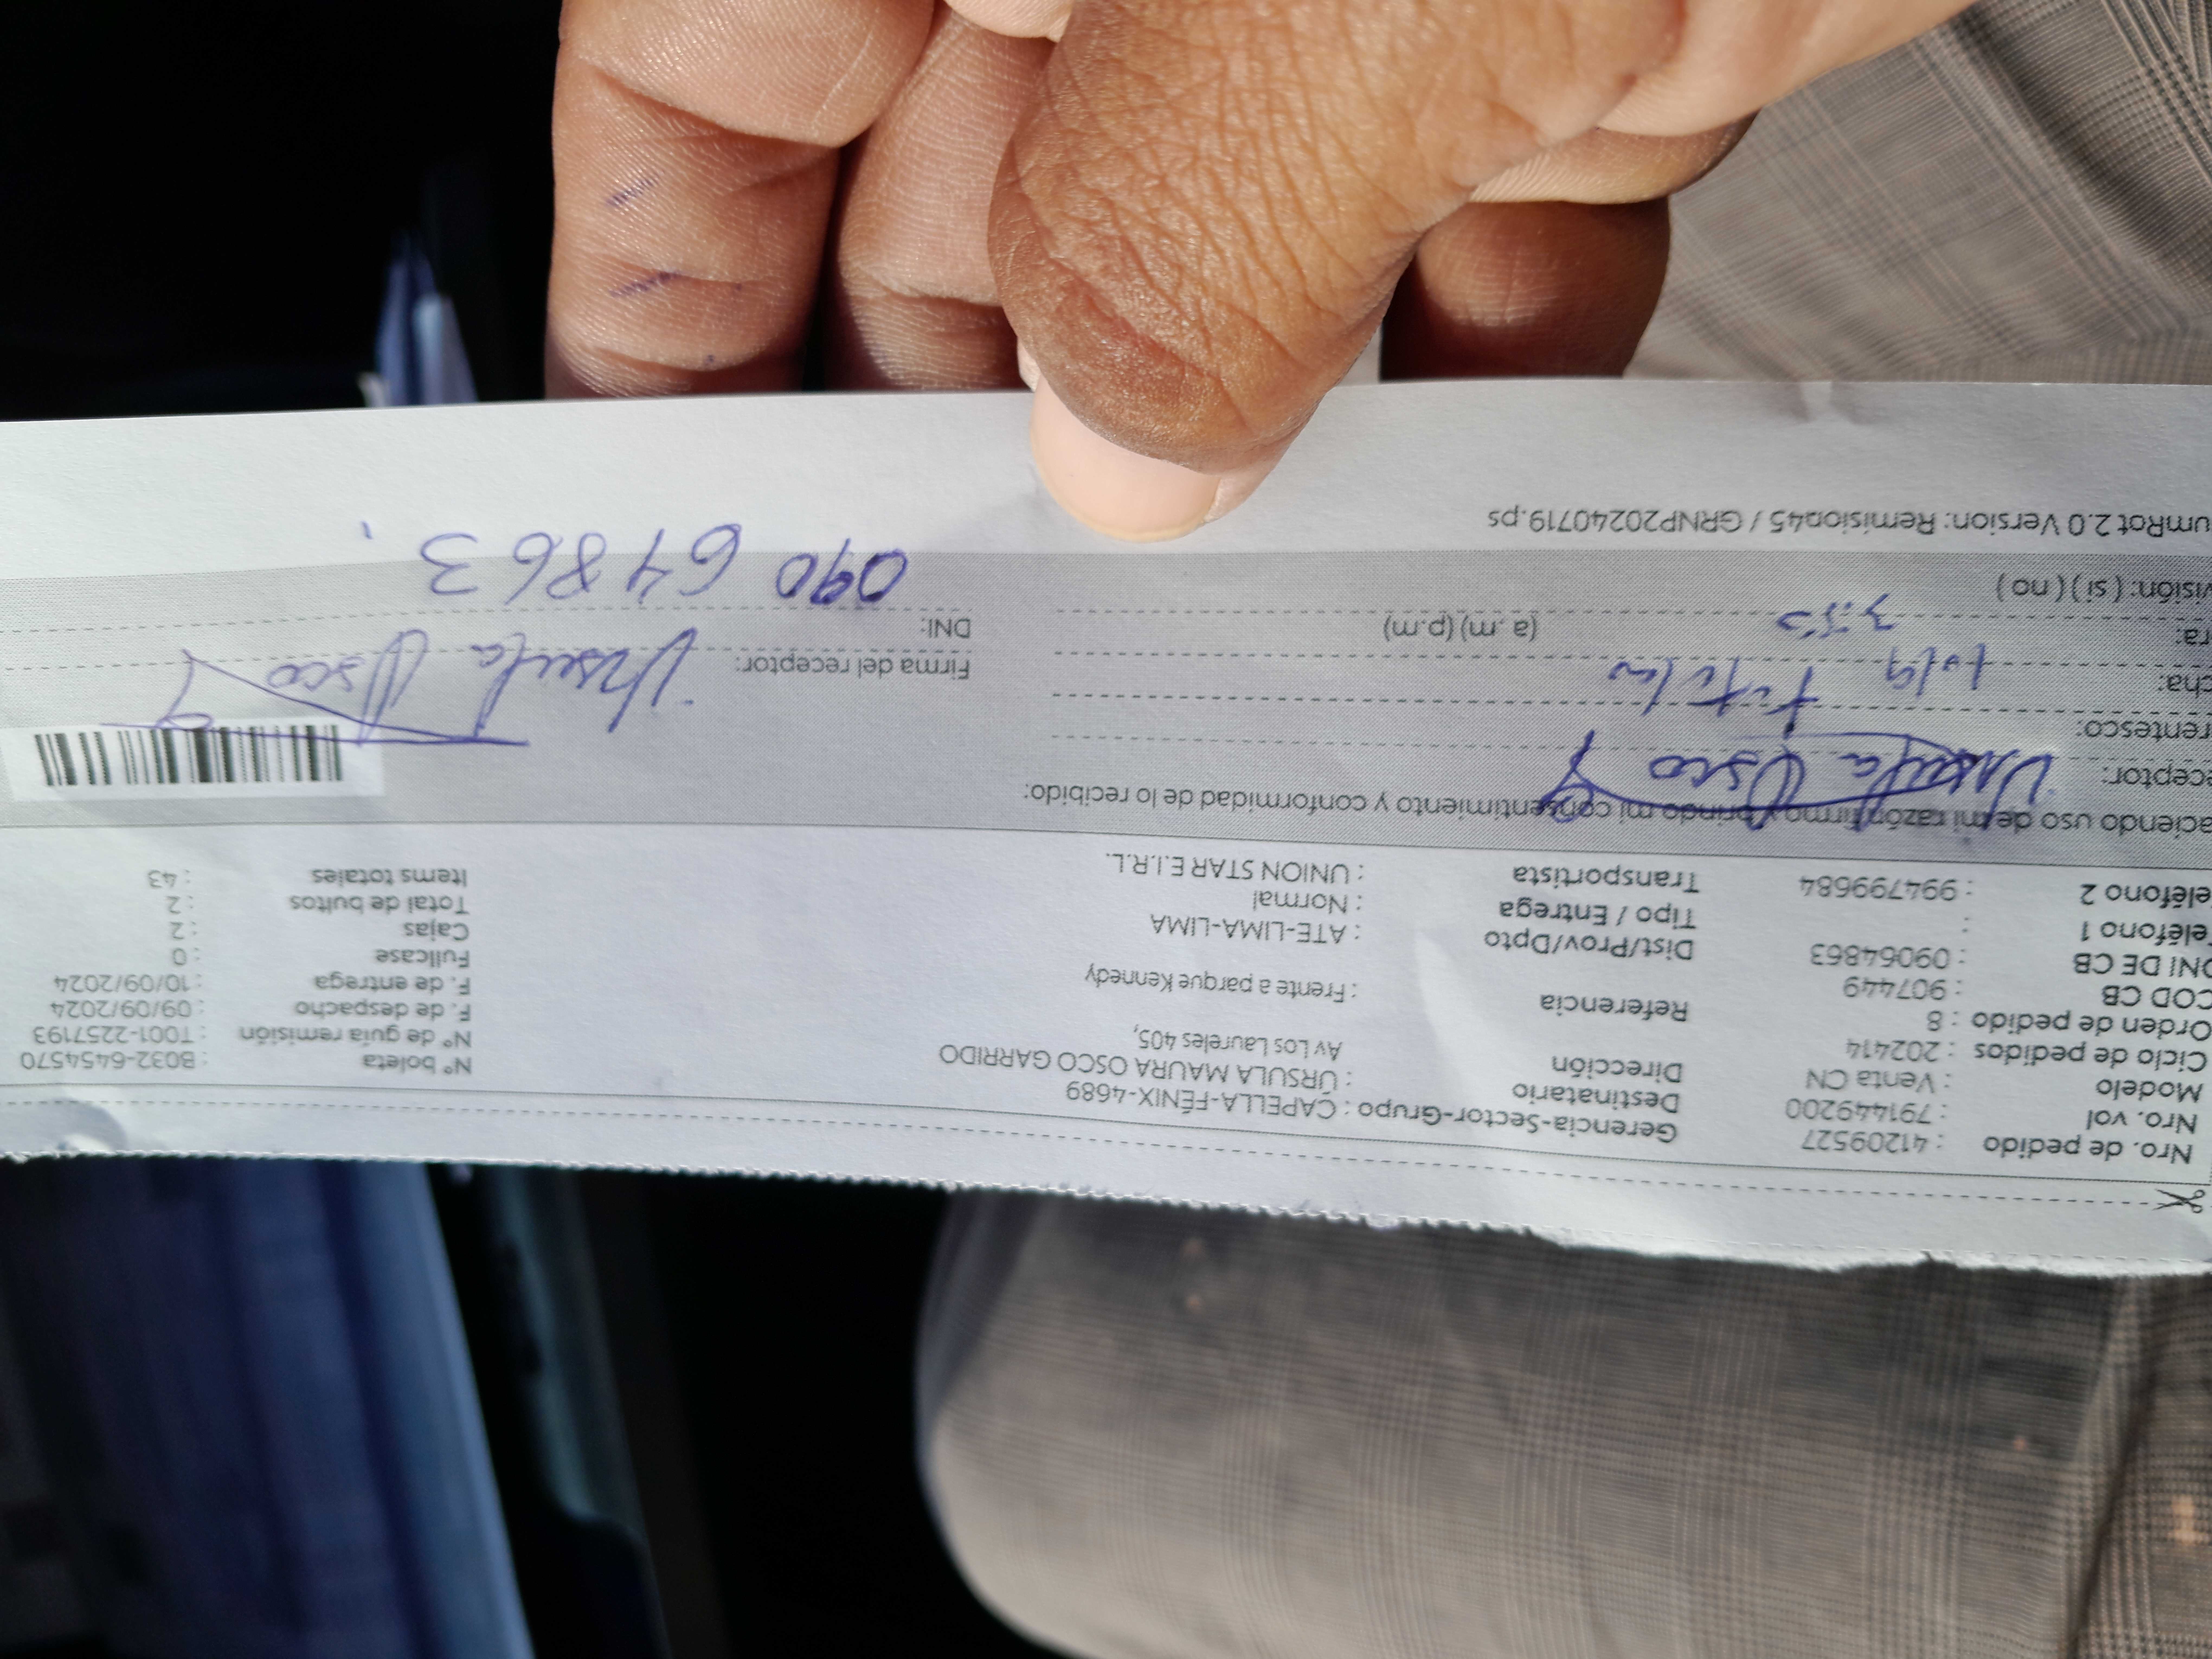 Nro. de pedido : 41209527 Gerencia-Sector-Grupo : CAPELLA-FÉNIX-4689 N° boleta : B032-6454570
Nro. vol : 791449200 Destinatario : ÚRSULA MAURA OSCO GARRIDO N° de guía remisión : T001-2257193
Modelo : Venta CN Dirección Av Los Laureles 405, F. de despacho : 09/09/2024
Ciclo de pedidos : 202414 F. de entrega : 10/09/2024
Orden de pedido : 8 Referencia : Frente a parque Kennedy Fullcase : 0
COD CB : 907449 Cajas : 2
DNI DE CB : 09064863 Dist/Prov/Dpto : ATE-LIMA-LIMA Total de bultos : 2
eléfono 1 : Tipo / Entrega : Normal Items totales : 43
eléfono 2 : 994799684 Transportista : UNION STAR E.I.R.L.
aciendo uso de mi razón firmo y brindo mi consentimiento y conformidad de lo recibido:
ceptor: Ursula Osco G
rentesco: titular
cha: 10/9
ra: (a .m) (p.m)
visión: ( si ) ( no )
Firma del receptor: Ursula Osco G
DNI: 09064863
umRot 2.0 Version: Remision45 / GRNP20240719.ps